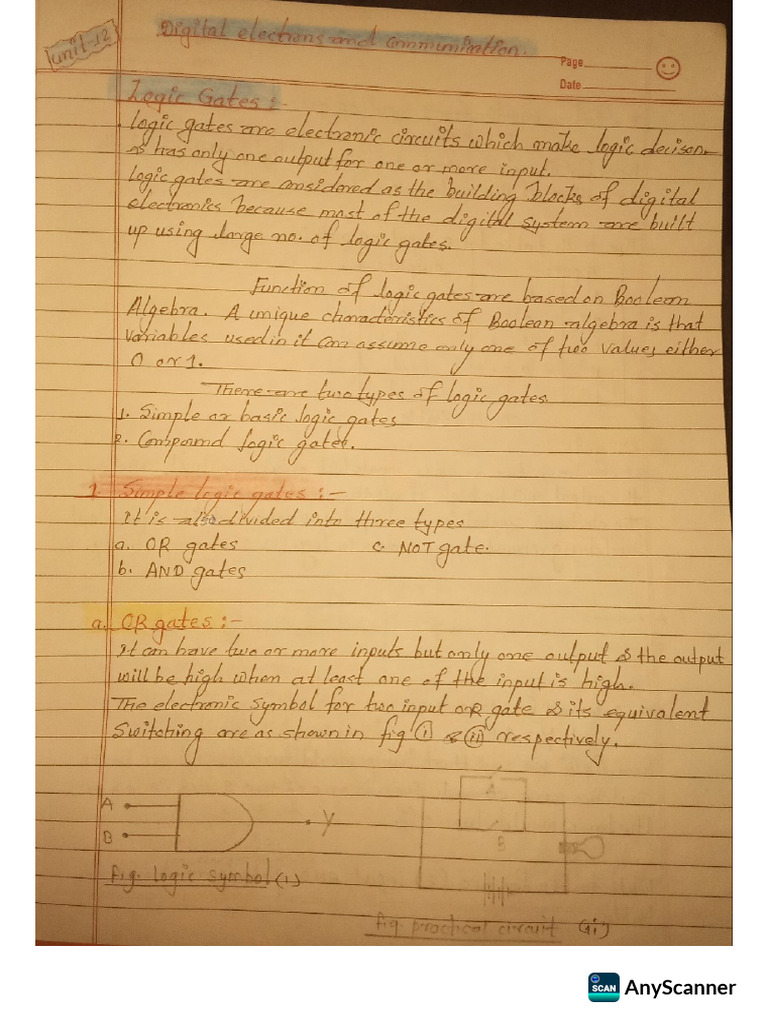 unit-12
Digital electrons and communication.
Page
Date
Logic Gates:-
Logic gates are electronic circuits which make logic decison
& has only one output for one or more input.
Logic gates are considered as the building blocks of digital
electronics because most of the digital system are built
up using large no. of logic gates.
Function of logic gates are based on Boolean
Algebra. A unique characteristics of Boolean algebra is that
variables used in it can assume only one of two values either
0 or 1.
There are two types of logic gates
1. Simple or basic logic gates
2. Compound logic gates.
1. Simple logic gates:-
It is also divided into three types
a. OR gates c. NOT gate.
b. AND gates
a. OR gates:-
It can have two or more inputs but only one output & the output
will be high when at least one of the input is high.
The electronic symbol for two input OR gate & its equivalent
Switching are as shown in fig (i) & (ii) respectively.
A
B
Y
A
B
Fig. logic symbol (i)
fig. practical circuit (ii)
SCAN AnyScanner